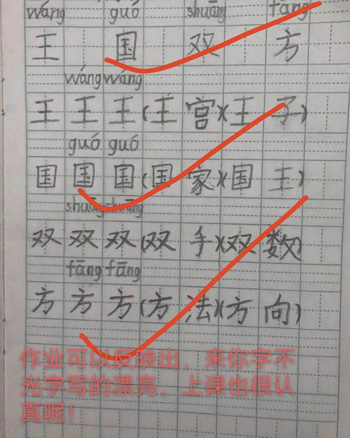 wáng guó shuāng fāng
王 国 双 方
wáng wáng
王 王 王(王 宫)(王 子)
guó guó
国 国 国(国 家)(国 王)
shuāng shuāng
双 双 双(双 手)(双 数)
fāng fāng
方 方 方(方 法)(方 向)
作业可以反映出，来你字不
光字写的漂亮，上课也很认
真呢！